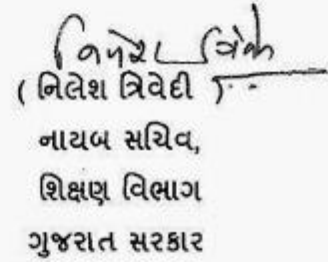 ( નિલેશ ત્રિવેદી )
નાયબ સચિવ,
શિક્ષણ વિભાગ
ગુજરાત સરકાર